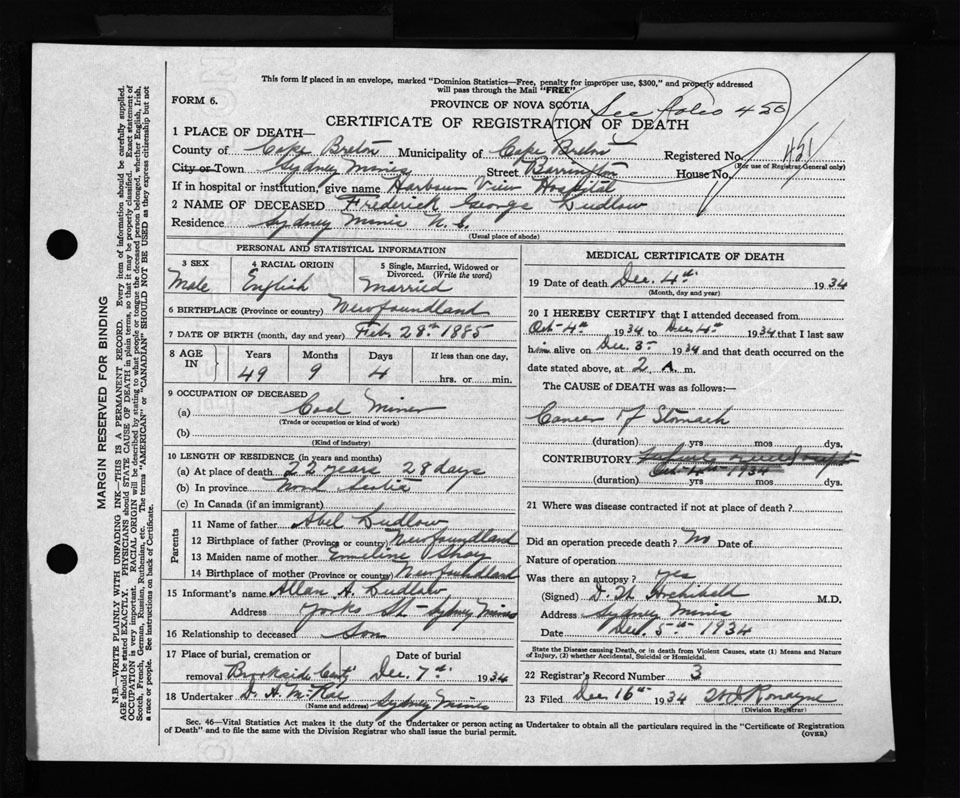 This form if placed in an envelope, marked "Dominion Statistics—Free, penalty for improper use, $300," and properly addressed
will pass through the Mail "FREE"
FORM 6.
PROVINCE OF NOVA SCOTIA
See folio 450
CERTIFICATE OF REGISTRATION OF DEATH
1 PLACE OF DEATH—
County of Cape Breton Municipality of Cape Breton Registered No. 451
(For use of Registrar General only)
City or Town Sydney Mines Street Barrington House No.
If in hospital or institution, give name Harbour View Hospital
2 NAME OF DECEASED Frederick George Ludlow
Residence Sydney Mines N.S.
(Usual place of abode)
PERSONAL AND STATISTICAL INFORMATION
3 SEX 4 RACIAL ORIGIN 5 Single, Married, Widowed or Divorced. (Write the word)
Male English Married
6 BIRTHPLACE (Province or country) Newfoundland
7 DATE OF BIRTH (month, day and year) Feb 28th 1885
8 AGE IN Years Months Days If less than one day,
49 9 4 hrs. or min.
9 OCCUPATION OF DECEASED
(a) Coal Miner
(Trade or occupation or kind of work)
(b)
(Kind of industry)
10 LENGTH OF RESIDENCE (in years and months)
(a) At place of death 22 years 28 days
(b) In province Nova Scotia
(c) In Canada (if an immigrant)
Parents
11 Name of father Abel Ludlow
12 Birthplace of father (Province or country) Newfoundland
13 Maiden name of mother Emmeline
14 Birthplace of mother (Province or country) Newfoundland
15 Informant's name Allan A. Ludlow
Address Yorke St - Sydney Mines
16 Relationship to deceased Son
17 Place of burial, cremation or removal Date of burial
Brookside Dec 7th 1934
18 Undertaker D. A. McRae
(Name and address) Sydney Mines
MEDICAL CERTIFICATE OF DEATH
19 Date of death Dec. 4th 1934
(Month, day and year)
20 I HEREBY CERTIFY that I attended deceased from
Oct-4th 1934 to Dec 4th 1934 that I last saw
him alive on Dec 3rd 1934 and that death occurred on the
date stated above, at 2 A. m.
The CAUSE of DEATH was as follows:—
Cancer of Stomach
(duration) yrs mos dys.
CONTRIBUTORY
1934
(duration) yrs mos dys.
21 Where was disease contracted if not at place of death?
Did an operation precede death? No Date of
Nature of operation
Was there an autopsy? yes
(Signed) D. W. Archibald M.D.
Address Sydney Mines
Date Dec. 5th 1934
State the Disease causing Death, or in death from Violent Causes, state (1) Means and Nature of Injury, (2) whether Accidental, Suicidal or Homicidal.
22 Registrar's Record Number 3
23 Filed Dec 16th 1934
(Division Registrar)
Sec. 46—Vital Statistics Act makes it the duty of the Undertaker or person acting as Undertaker to obtain all the particulars required in the "Certificate of Registration
of Death" and to file the same with the Division Registrar who shall issue the burial permit. (OVER)
MARGIN RESERVED FOR BINDING
N.B.—WRITE PLAINLY WITH UNFADING INK—THIS IS A PERMANENT RECORD. Every item of information should be carefully supplied.
AGE should be stated EXACTLY. PHYSICIANS should STATE CAUSE OF DEATH in plain terms, so that it may be properly classified. Exact statement of
OCCUPATION is very important. RACIAL ORIGIN will be described by stating to what people or tongue the deceased person belonged, whether English, Irish,
Scotch, French, German, Russian, Ruthenian, etc. The terms "AMERICAN" or "CANADIAN" SHOULD NOT BE USED as they express citizenship but not
a race or people. See instructions on back of Certificate.